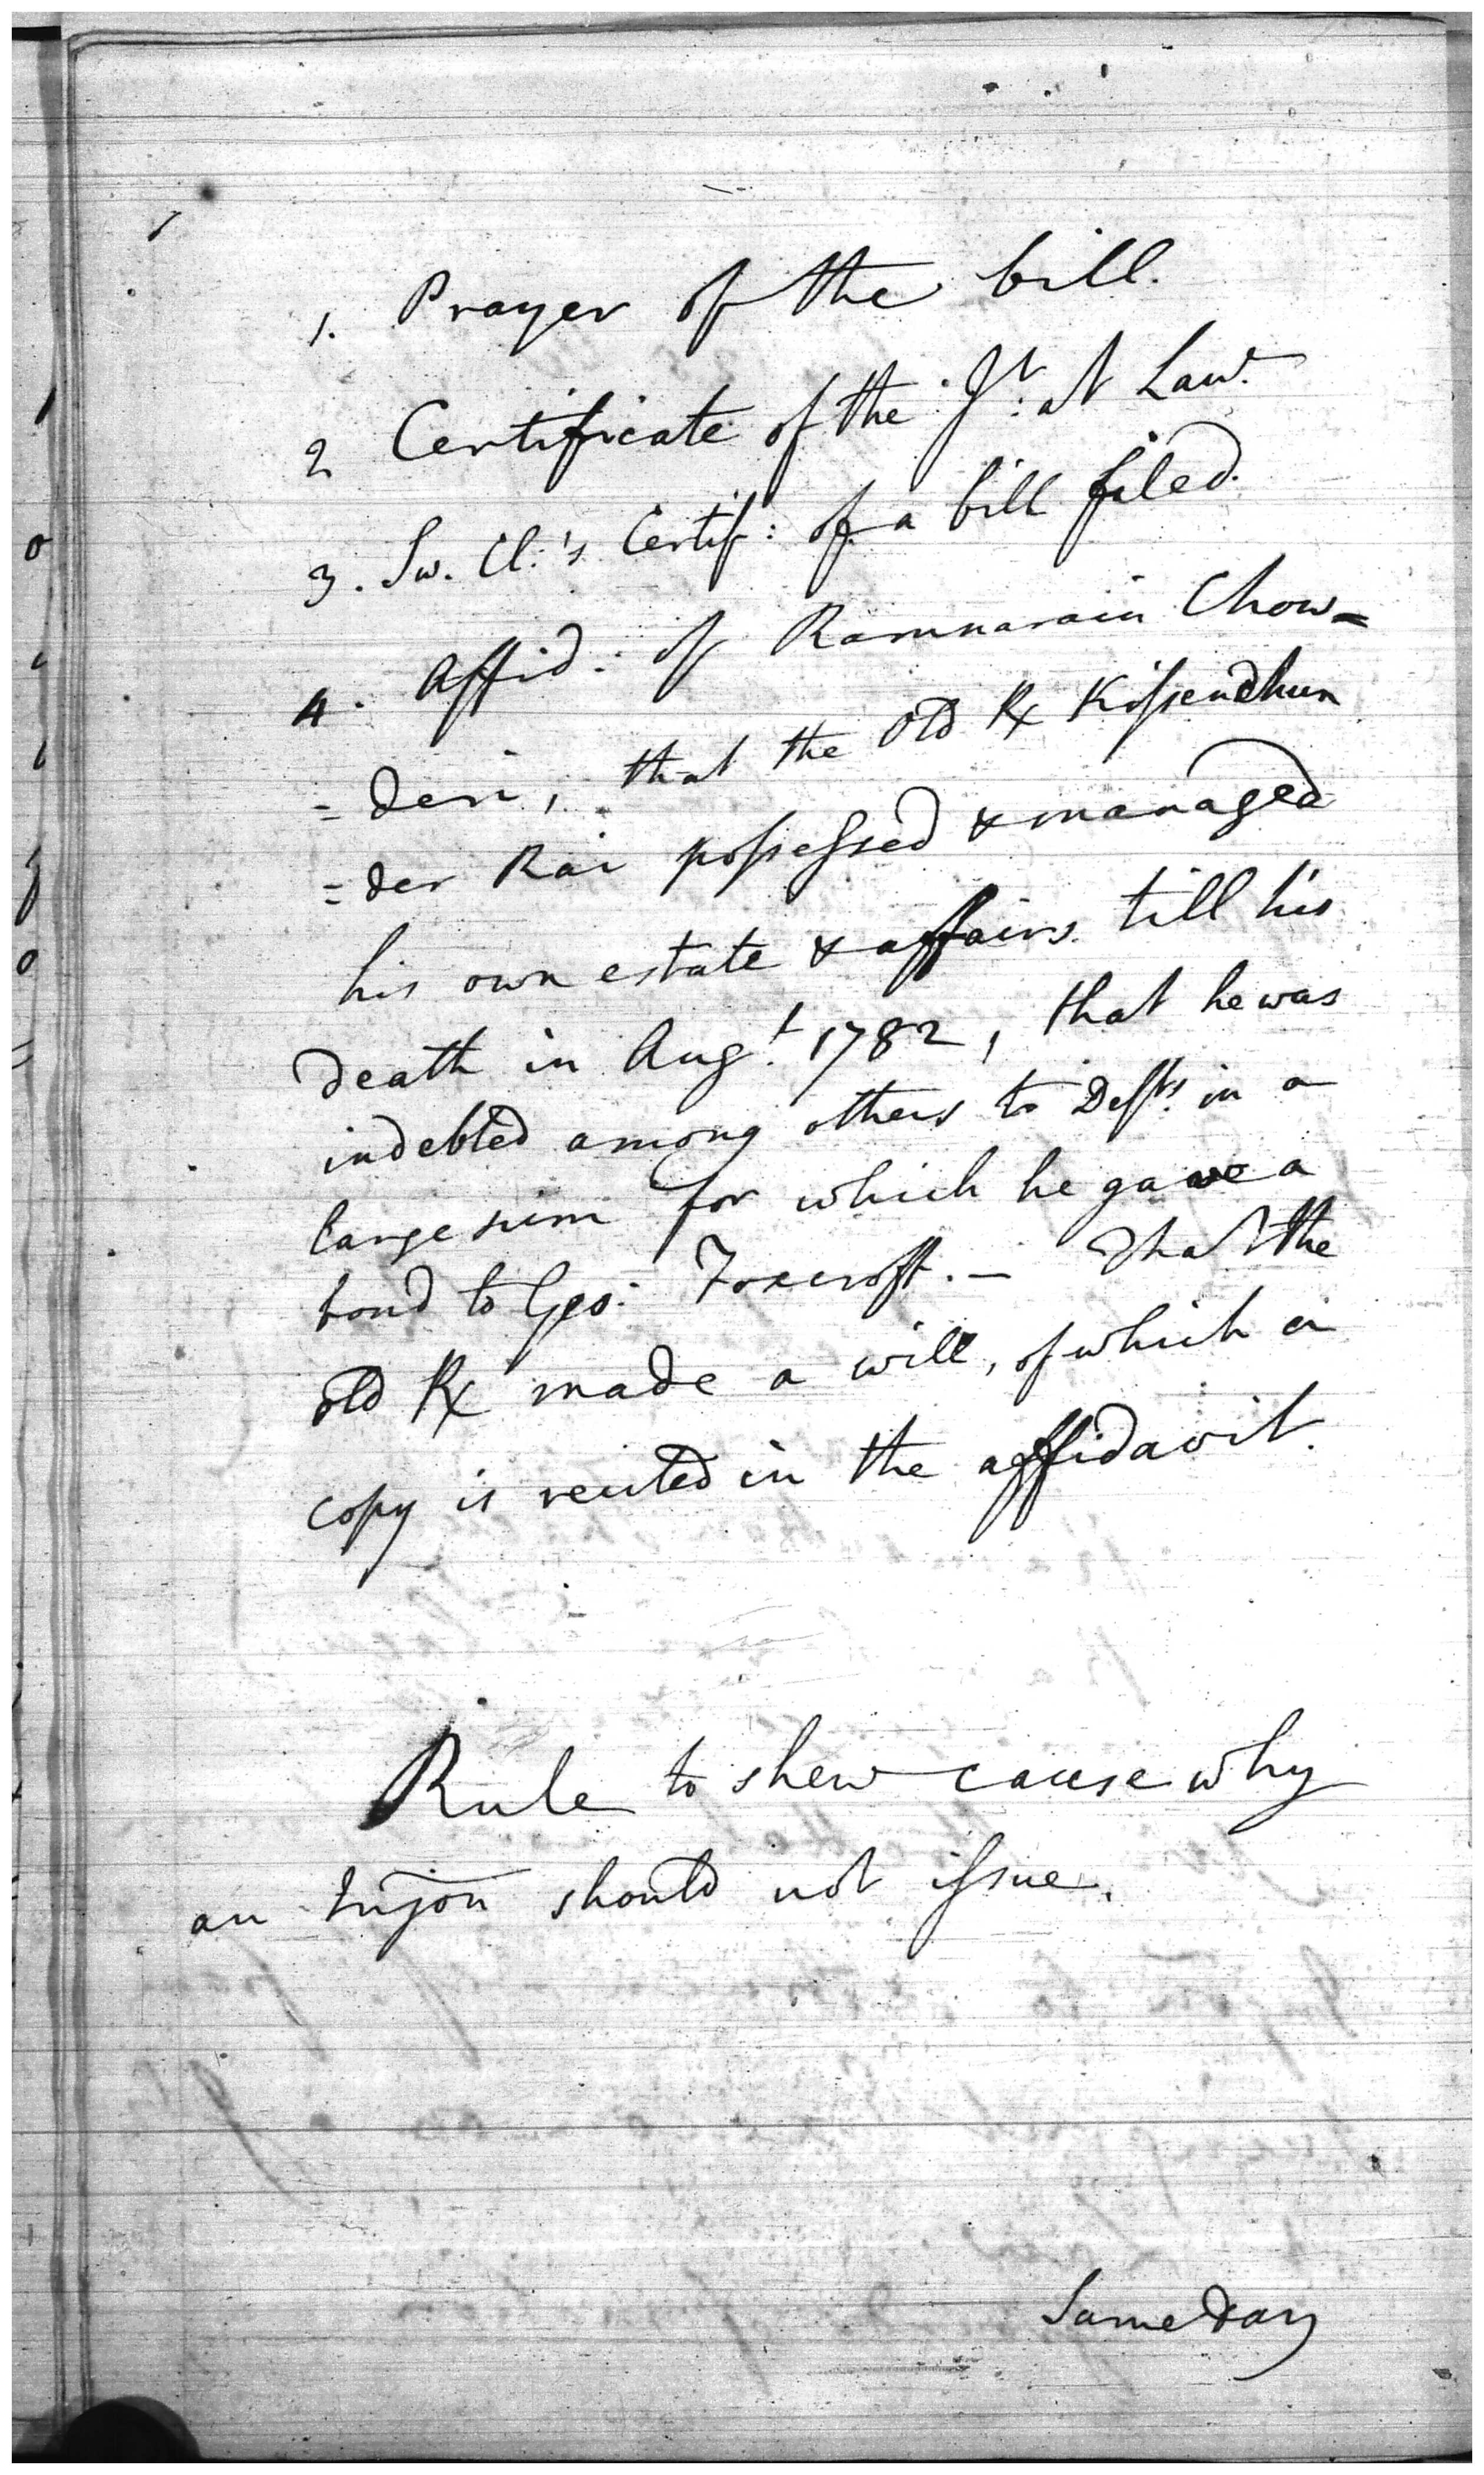 1. Prayer of the bill.
2 Certificate of the Jt: at Law.
3. Sw. Cl:'s Certif: of a bill filed.
4. Affid: of Ramnarain Chow=
=deri, that the old Rx Kissendhun
=der Rai possessed & managed
his own estate & affairs till his
death in Augt. 1782, that he was
indebted among others to Defts. in a
large sum for which he gave a
bond to Geo: Foxcroft. — That the
old Rx made a will, of which a
copy is recited in the affidavit.
Rule to shew cause why
an Injon should not issue.
Same day